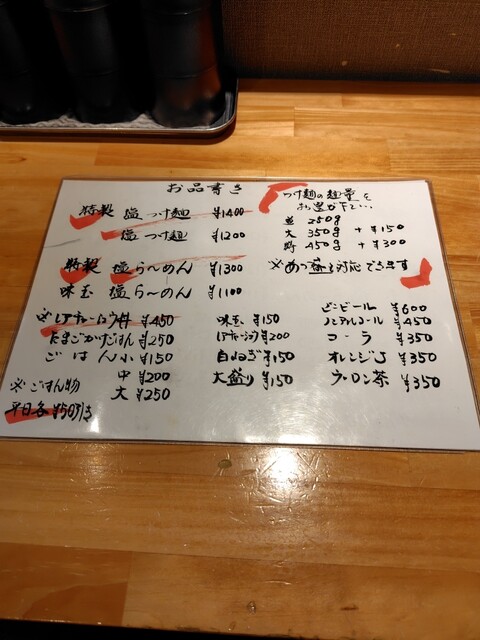 お品書き
特製 塩つけ麺 ¥1400
塩つけ麺 ¥1200
特製 塩らーめん ¥1300
味玉 塩らーめん ¥1100
※レアチャーシュウ丼 ¥450
たまごかけごはん ¥250
ごはん小 ¥150
中 ¥200
大 ¥250
※ごはん物
平日各¥50引き
つけ麺の麺量を
お選び下さい…
並 250g
大 350g +¥150
野 450g +¥300
※あつ盛も対応できます
味玉 ¥150
レアチャーシュウ ¥200
白ねぎ ¥150
大盛り ¥150
ビンビール ¥600
ノンアルコール ¥450
コーラ ¥350
オレンジJ ¥350
ウーロン茶 ¥350